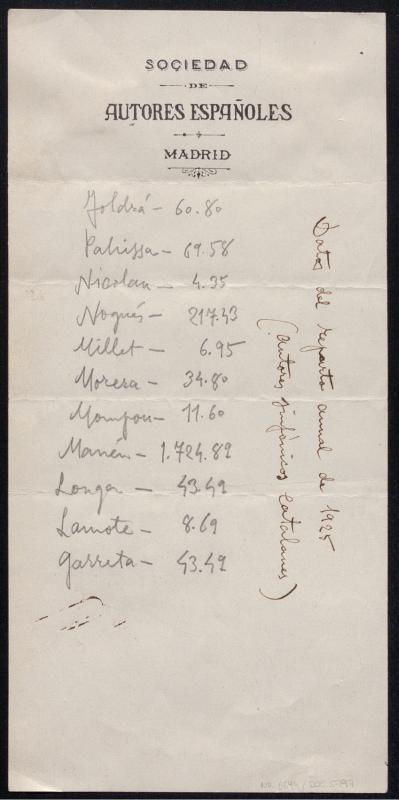 SOCIEDAD
DE
AUTORES ESPAÑOLES
MADRID
Joldrá - 60.80
Pahissa - 69.58
Nicolau - 4.35
Nogués - 217.43
Millet - 6.95
Morera - 34.80
Mompou - 11.60
Manén - 1.724.82
Longa - 43.49
Lamote - 8.69
Garreta - 43.49
Datos del reparto anual de 1925
(autores sinfónicos catalanes)